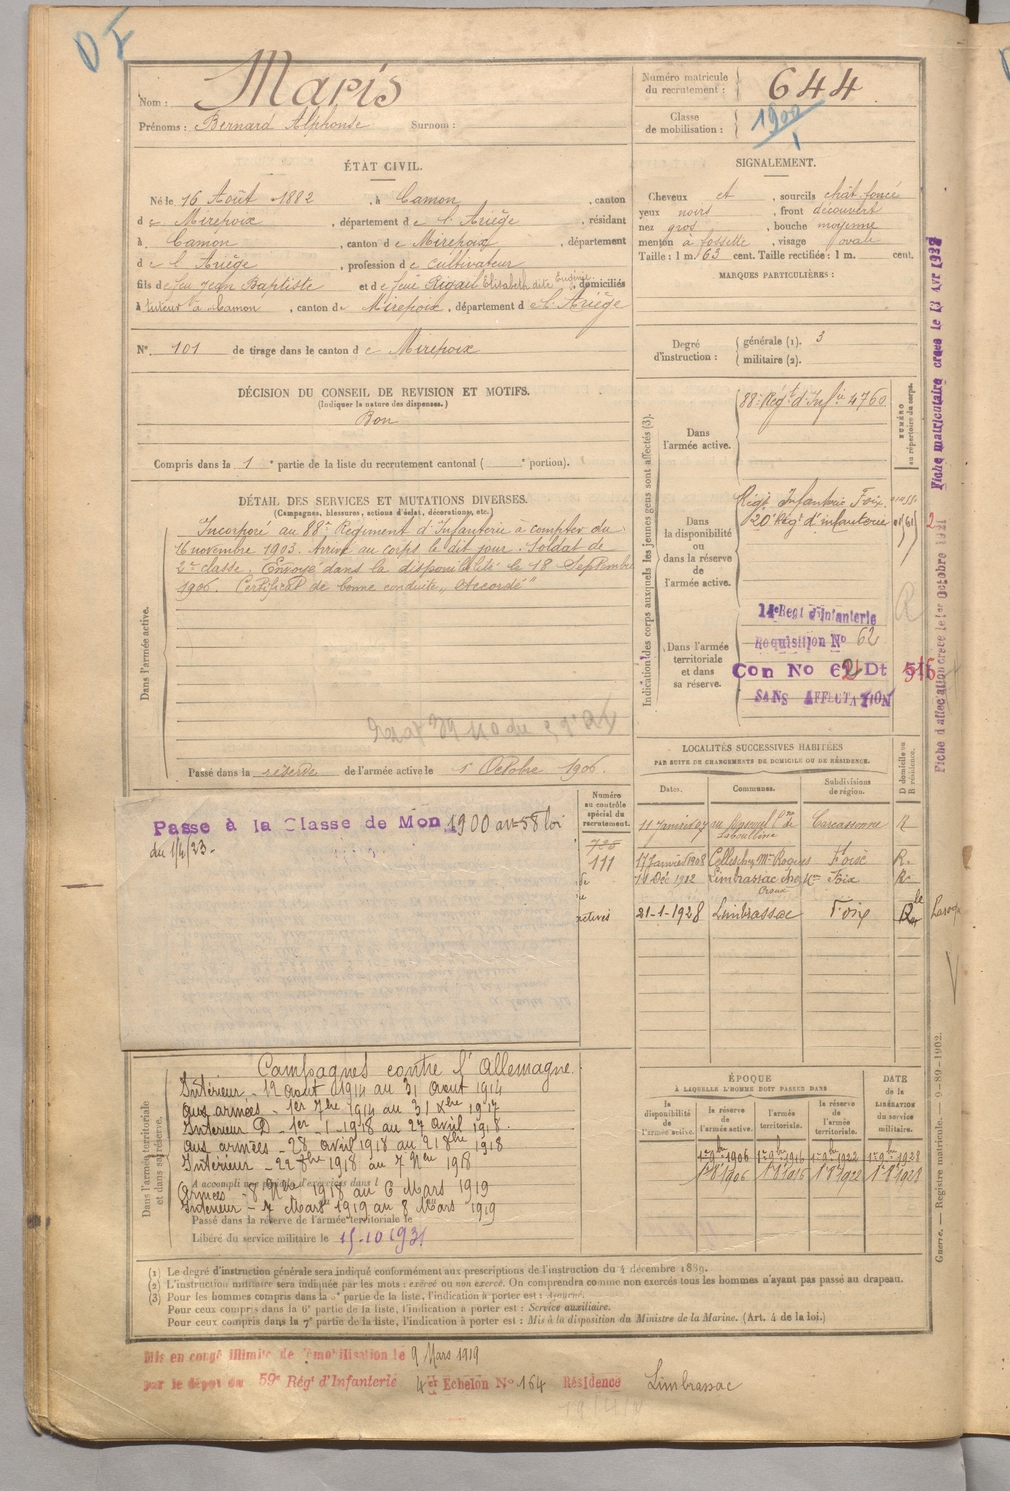 Nom : Maris
Prénoms : Bernard Alphonse Surnom :
Numéro matricule du recrutement : 644
Classe de mobilisation : 1900
ÉTAT CIVIL.
Né le 16 Août 1882, à Camon, canton
de Mirepoix, département de l'Ariège, résidant
à Camon, canton de Mirepoix, département
de l'Ariège, profession de cultivateur
fils de feu Jean Baptiste et de feue Rigail Elisabeth dite, domiciliés
à tuteur à Camon, canton de Mirepoix, département de l'Ariège
N° 101 de tirage dans le canton de Mirepoix
SIGNALEMENT.
Cheveux et, sourcils chat. foncé
yeux noirs, front découvert
nez gros, bouche moyenne
menton à fossette, visage ovale
Taille : 1 m. 63 cent. Taille rectifiée : 1 m. cent.
MARQUES PARTICULIÈRES :
Degré d'instruction : générale (1). 3
militaire (2).
DÉCISION DU CONSEIL DE REVISION ET MOTIFS.
(Indiquer la nature des dispenses.)
Bon
Compris dans la 1e partie de la liste du recrutement cantonal ( e portion).
DÉTAIL DES SERVICES ET MUTATIONS DIVERSES.
(Campagnes, blessures, actions d'éclat, décorations, etc.)
Dans l'armée active.
Incorporé au 88e Régiment d'Infanterie à compter du
16 novembre 1903. Arrivé au corps le dit jour. Soldat de
2e classe. Envoyé dans la disponibilité le 18 Septembre
1906. Certificat de bonne conduite "Accordé"
Passé dans la réserve de l'armée active le 1er Octobre 1906
Indication des corps auxquels les jeunes gens sont affectés (3).
NUMÉRO au répertoire du corps.
Dans l'armée active. 88e Régt d'Infie 4760
Dans la disponibilité ou dans la réserve de l'armée active.
Régt Infanterie Foix
20e Régt d'infanterie
Dans l'armée territoriale et dans sa réserve.
14e Regt d'Infanterie
Requisition N° 62
Con No 62 Dt
SANS AFFECTATION
Fiche matriculaire créée le 13 Avr 1938
Fiche d'affectation créée le 1er Octobre 1921
LOCALITÉS SUCCESSIVES HABITÉES
PAR SUITE DE CHANGEMENTS DE DOMICILE OU DE RÉSIDENCE.
Dates. Communes. Subdivisions de région. D domicile ou R résidence.
11 Janvier 07 Carcassonne R
17 Janvier 1908 Foix R.
Déc 1912 Limbrassac Foix R.
21-1-1928 Limbrassac Foix
Numéro au contrôle spécial du recrutement.
111
Passe à la Classe de Mon 1900 art 58 loi
du 1/4/23.
Dans l'armée territoriale et dans sa réserve.
Campagnes contre l'Allemagne.
Intérieur - 12 aout 1914 au 31 aout 1914
aux armées - 1er 7bre 1914 au 31 Xbre 1917
Intérieur D - 1er - 1 - 1918 au 27 avril 1918.
aux armées - 28 avril 1918 au 21 8bre 1918
Intérieur - 22 8bre 1918 au 7 Nov 1918
armées - 8 Nov 1918 au 6 Mars 1919
Intérieur - 7 Mars 1919 au 8 Mars 1919
Passé dans la réserve de l'armée territoriale le
Libéré du service militaire le 15-10-1931
ÉPOQUE
À LAQUELLE L'HOMME DOIT PASSER DANS
la disponibilité de l'armée active. la réserve de l'armée active. l'armée territoriale. la réserve de l'armée territoriale.
DATE de la LIBÉRATION du service militaire.
1er 9bre 1906 1er 9bre 1916 1er 9bre 1922 1er 9bre 1928
Guerre. — Registre matricule. — 9-89-1902.
(1) Le degré d'instruction générale sera indiqué conformément aux prescriptions de l'instruction du 4 décembre 1889.
(2) L'instruction militaire sera indiquée par les mots : exercé ou non exercé. On comprendra comme non exercés tous les hommes n'ayant pas passé au drapeau.
(3) Pour les hommes compris dans la partie de la liste, l'indication à porter est : Ajourné.
Pour ceux compris dans la 6e partie de la liste, l'indication à porter est : Service auxiliaire.
Pour ceux compris dans la 7e partie de la liste, l'indication à porter est : Mis à la disposition du Ministre de la Marine. (Art. 4 de la loi.)
Mis en congé illimité de démobilisation le 9 Mars 1919
par le dépôt du 59e Régt d'Infanterie 4er Echelon N° 164 Résidence Limbrassac